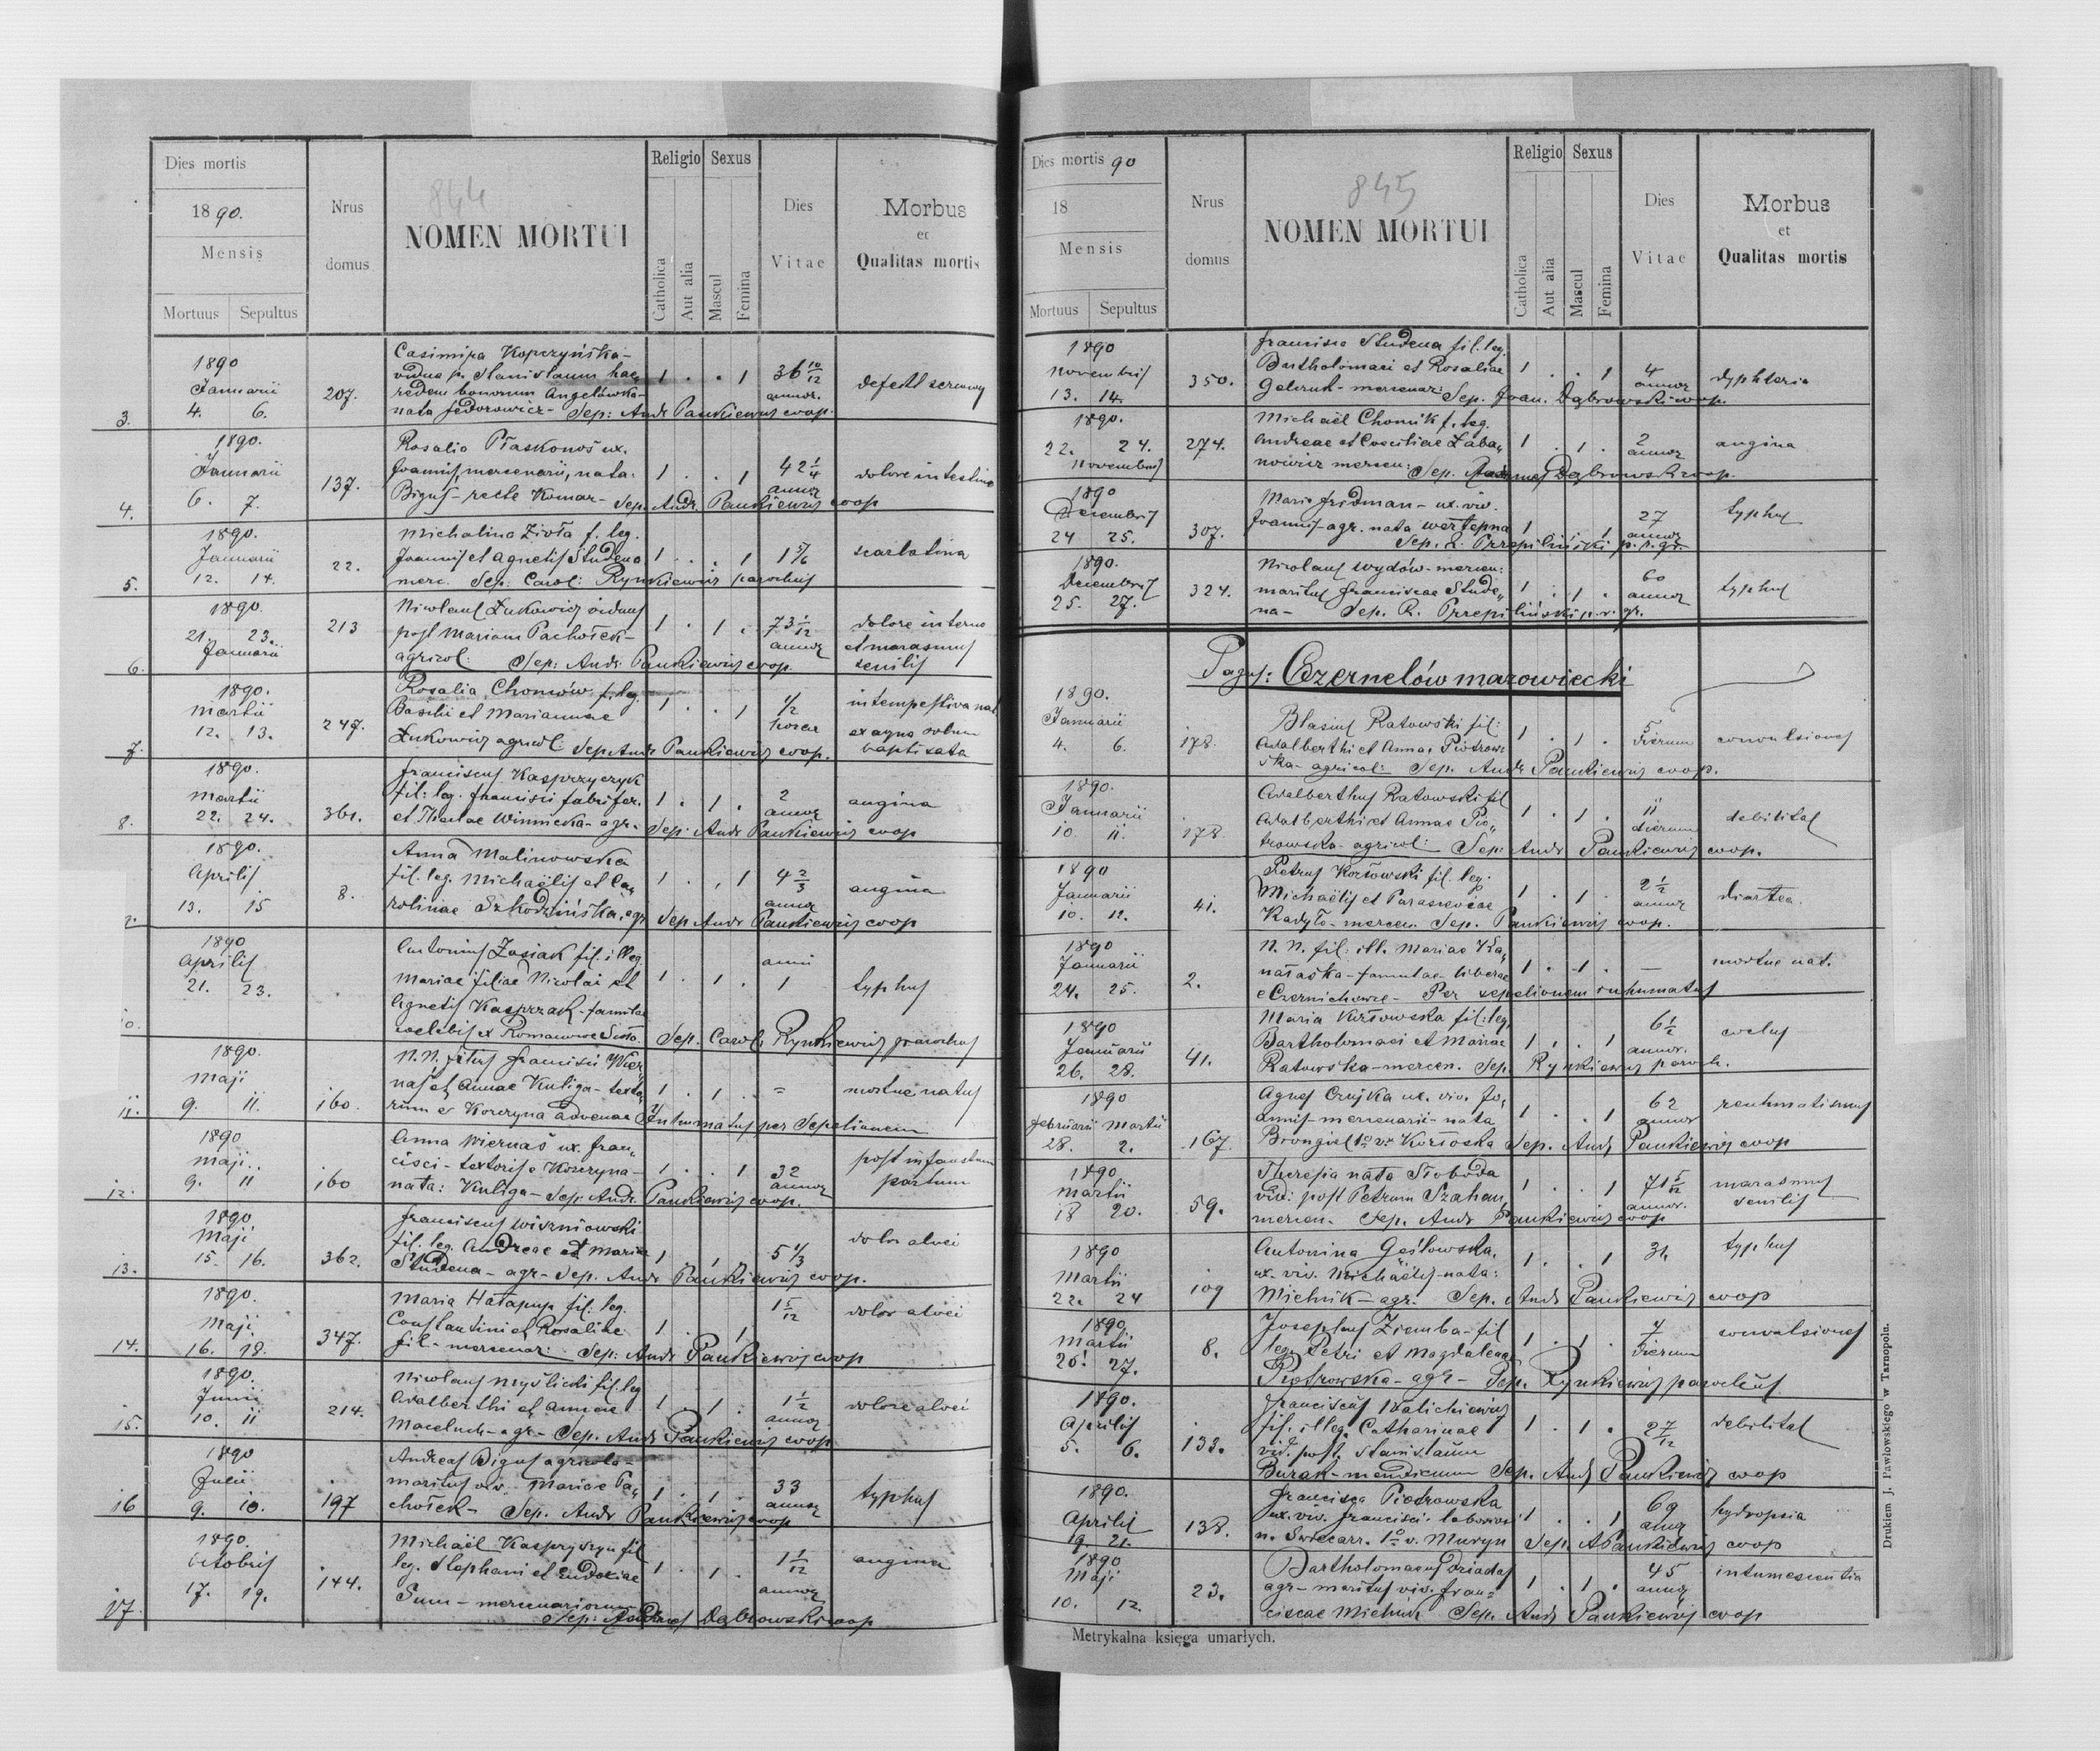 844
Dies mortis
1890.
Mensis
Mortuus Sepultus
Nrus domus
NOMEN MORTUI
Religio Sexus
Catholica
Aut alia
Mascul
Femina
Dies Vitae
Morbus
et
Qualitas mortis
3.
1890
Januarii
4. 6.
207.
Casimira Kopczyńska-
vidua p. Stanislaum hae„
redem bonorum Angelówka-
nata Fedorowicz- Sep: Andr Pankiewicz coop.
1 . . 1
36 10/12
annor.
defectu
4.
1890.
Januarii
6. 7.
137.
Rosalia Płaskonoś ux.
Joannis, mercenarii, nata:
Bigus- recte Komar- Sep. Andr. Pankiewicz coop
1 . . 1
42 1/4
annor
dolore intestino
5.
1890.
Januarii
12. 14.
22.
Michalina Zioła f. leg.
Joannis et Agnetis Studena
merc. Sep. Carol: Rynkiewicz parochus
1 . . 1
1 5/6
scarlatina
6.
1890.
21. 23.
Januarii
213
Nicolaus Łukowicz viduus
post Mariam Pachołek-
agricol: Sep: Andr. Pankiewicz coop.
1 . 1 .
73 1/12
annor
dolore interno
et marasmus
senilis
7.
1890.
Martii
12. 13.
247.
Rosalia Chomów f. leg.
Basilii et Mariannae
Łukowicz agricol: Sep. Andr Pankiewicz coop.
1 . . 1
1/2
horae
intempestiva nat.
ex aqua solum
baptisata
8.
1890.
Martii
22. 24.
361.
Franciscus Kasprzyczyk
fil: leg. Francisci fabri fer.
et Theclae Winnicka- agr. Sep: Andr Pankiewicz coop
1 . 1 .
2
annor
angina
1890.
Aprilis
13. 15
8.
Anna Malinowska
fil. leg. Michaëlis et Ca„
rolinae Szkodzińska, agr Sep Andr Pankiewicz coop
1 . . 1
4 2/3
annor
angina
1890
Aprilis
21. 23.
Antonius Zasiak fil. illeg.
Mariae filiae Nicolai et
Agnetis Kasprzak- famulae
coelebis ex Romanowe Sioło. Sep. Carol. Rynkiewicz parochus
1 . 1 .
anni
1
typhus
11.
1890.
Maji
9. 11.
160.
N.N. filius Francisci Wier„
naś et Annae Kuliga- texto„
rum e Korczyna advenae Inhumatus per Sepelionem
1 . 1 .
=
mortue natus
12.
1890
Maji..
9. 11
160
Anna Wiernaś ux. Fran„
cisci- textoris e Korczyna-
nata: Kuliga- Sep: Andr. Pankiewicz coop.
1 . . 1
32
annor
post infaustum
partum
13.
1890.
Maji
15. 16.
362.
Franciscus Wiszniowski
fil. leg. Andreae et Maria
Studena- agr- Sep. Andr Pankiewicz coop.
1 . 1 .
5 1/3
dolor alvei
14.
1890.
Maji
16. 18.
347.
Maria Hałapup fil. leg.
Constantini et Rosaliae
fil- mercenar: Sep: Andr Pankiewicz coop
1 . 1
1 5/12
dolor alvei
15.
1890.
Junii
10. 11
214.
Nicolaus Myślicki fil. leg
Adalberthi et Annae
Maceluch- agr- Sep. Andr Pankiewicz coop
1 . 1 .
1 1/2
annor
dolore alvei
16
1890
Julii
9. 10.
197
Andreas Bigus agricola-
maritus viv. Mariae Pa„
chołek- Sep. Andr Pankiewicz coop
1 . 1 .
33
annor
typhus
17.
1890.
Octobris
17. 19.
144.
Michaël Kasprzyszyn fil
leg. Stephani et Eudociae
Sum- mercenariorum
Sep: Dąbrowski coop
1 . 1 .
1 1/12
annor
angina
845
Dies mortis 90
18
Mensis
Mortuus Sepultus
Nrus domus
NOMEN MORTUI
Religio Sexus
Catholica
Aut alia
Mascul
Femina
Dies Vitae
Morbus
et
Qualitas mortis
1890
Novembris
13. 14.
350.
Francisca Studena fil. leg.
Bartholomaei et Rosaliae
mercenar: Sep. Joan. Dąbrowski coop.
1 . . 1
4
annor
dyphteria
1890.
22. 24.
Novembris
274.
Michaël Chomik f. leg.
Andreae et Coeciliae Łaba„
nowicz mercen: Sep. Dąbrowski coop.
1 . 1 .
2
annor
angina
1890
Decembris
24 25.
307.
Maria Frydman- ux. viv.
Joannis- agr. nata Wertepna
Sep. R. Przepiliński p. r. gr.
1 . . 1
27
annor
typhus
1890.
Decembris
25. 27.
324.
Nicolaus Wydów- mercen:
maritus Franciscae Stude„
na- Sep. R. Przepiliński p. r. gr.
1 . 1 .
60
annor
typhus
Pagus: Czernelów mazowiecki
1890.
Januarii
4. 6.
178.
Blasius Ratowski fil:
Adalberthi et Annae Piotrow
ska- agricol: Sep. Andr Pankiewicz coop.
1 . 1 .
5
dierum
convulsiones
1890.
Januarii
10. 11.
178
Adalberthus Ratowski fil
Adalberthi et Annae Pio„
trowska- agricol: Sep: Andr Pankiewicz coop.
1 . 1 .
11
dierum
debilitas
1890
Januarii
10. 12.
41.
Petrus Kozłowski fil. leg.
Michaëlis et Parascevae
Kadyło- mercen. Sep. Pankiewicz coop.
1 . 1 .
2 1/2
annor
diartea.
1890
Januarii
24. 25.
2.
N. N. fil: ill. Mariae Ka„
nafaska- famulae- liberae
e Czernichowce- Per sepelionem inhumatus
1 . 1 .
—
mortue nat.
1890
Januarii
26. 28.
41.
Maria Kozłowska fil: leg.
Bartholomaei et Mariae
Ratowska- mercen. Sep. Rynkiewicz paroch.
1 . . 1
6 1/2
annor.
1890
Februarii Martii
28. 2.
167.
Agnes Czujka ux. viv. Jo„
annis- mercenarii- nata
Brongiel 1o v. Kozłoska Sep. Andr Pankiewicz coop
1 . . 1
62
annor
reuhmatismus
1890
Martii
18 20.
59.
Theresia nata Słoboda
vid: post Petrum Szahan
mercen. Sep. Andr Pankiewicz coop
1 . . 1
71 5/12
annor.
marasmus
senilis
1890
Martii
22. 24
109
Antonina Gęślowska,
ux. viv. Michaëlis- nata:
Michnik- agr. Sep. Andr Pankiewicz coop
1 . . 1
31.
typhus
1890.
Martii
26. 27.
8.
Josephus Ziemba- fil
leg. Petri et Magdalenae
Piotrowska- agr- Sep. Rynkiewicz parochus.
1 . 1 .
7
dierum
convulsiones
1890.
Aprilis
5. 6.
133.
Franciscus Walichiewicz
fil. illeg. Catharinae
vid. post. Stanislaum
Burak- mendicum Sep. Andr Pankiewicz coop
1 . 1 .
2 7/12
debilitas
1890.
Aprilis
19. 21.
138.
Francisca Piotrowska
ux. viv. Francisci laborios
n. Świecarz. 1o v. Muryn Sep. A Pankiewicz coop
1 . . 1
69
annor
hydropsia
1890
Maji
10. 12.
23.
Bartholomaeus Dziadas
agr- maritus viv. Fran=
ciscae Michnik Sep. Andr Pankiewicz coop
1 . 1 .
45
annor
intumescentia
Metrykalna księga umarłych.
Drukiem J. Pawłowskiego w Tarnopolu.